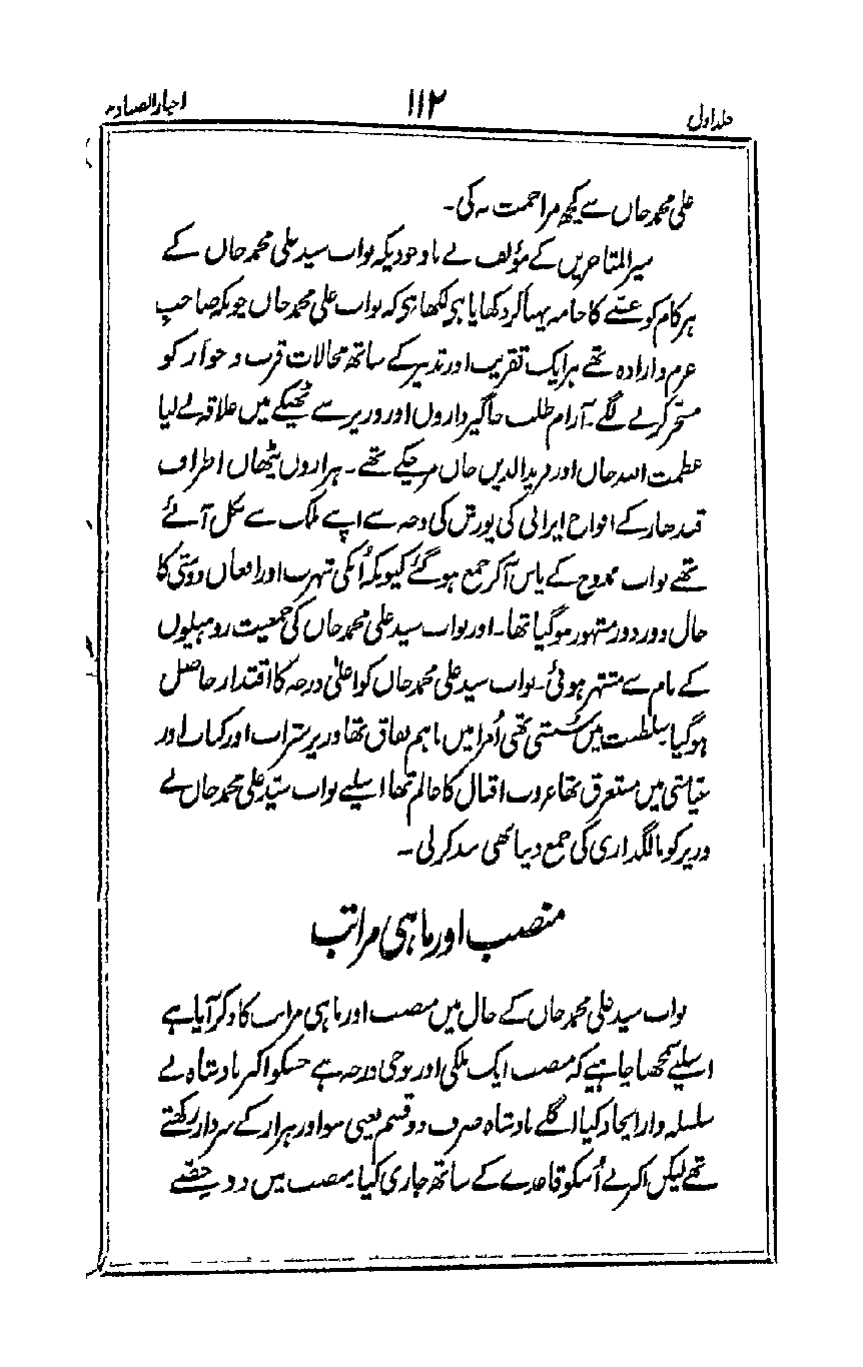 جلد اول ۱۱۲ اخبار الصنادید
علی محمد خاں سے کچھ مزاحمت نہ کی۔
سیر المتاخرین کے مؤلف نے باوجودیکہ نواب سید علی محمد خاں کے
ہر کام کو عیب کا جامہ پہنا کر دکھایا ہی لکھا ہی کہ نواب علی محمد خاں چونکہ صاحب
عزم و ارادہ تھے ہر ایک تقریب اور تدبیر کے ساتھ محالات قرب و جوار کو
مسخر کرنے لگے۔ آرام طلب جاگیرداروں اور وزیر سے ٹھیکے میں علاقے لیا
عظمت اللہ خاں اور فرید الدین خاں مر چکے تھے۔ ہزاروں پٹھان اطراف
قندھار کے افواج ایرانی کی یورش کی وجہ سے اپنے ملک سے نکل آئے
تھے نواب ممدوح کے پاس آکر جمع ہو گئے کیونکہ اُنکی شہرت اور افغان دوستی کا
حال دور دور مشہور ہو گیا تھا۔ اور نواب سید علی محمد خاں کی جمعیت روہیلوں
کے نام سے مشتہر ہوئی۔ نواب سید علی محمد خاں کو اعلیٰ درجہ کا اقتدار حاصل
ہو گیا سلطنت میں سستی تھی اُمرا میں باہم نفاق تھا وزیر شراب اور کباب اور
عیاشی میں مستغرق تھا غروب اقبال کا عالم تھا اسلیے نواب سید علی محمد خاں نے
وزیر کو مالگذاری کی جمع دینا بھی بند کر لی۔
منصب اور ماہی مراتب
نواب سید علی محمد خاں کے حال میں منصب اور ماہی مراتب کا ذکر آیا ہے
اسلیے سمجھنا چاہیے کہ منصب ایک ملکی اور فوجی درجہ ہے جسکو اکبر بادشاہ نے
سلسلہ وار ایجاد کیا اگلے بادشاہ صرف دو قسم یعنی سو اور ہزار کے سردار رکھتے
تھے لیکن اکبر نے اُسکو قاعدے کے ساتھ جاری کیا۔ منصب میں دو حصے